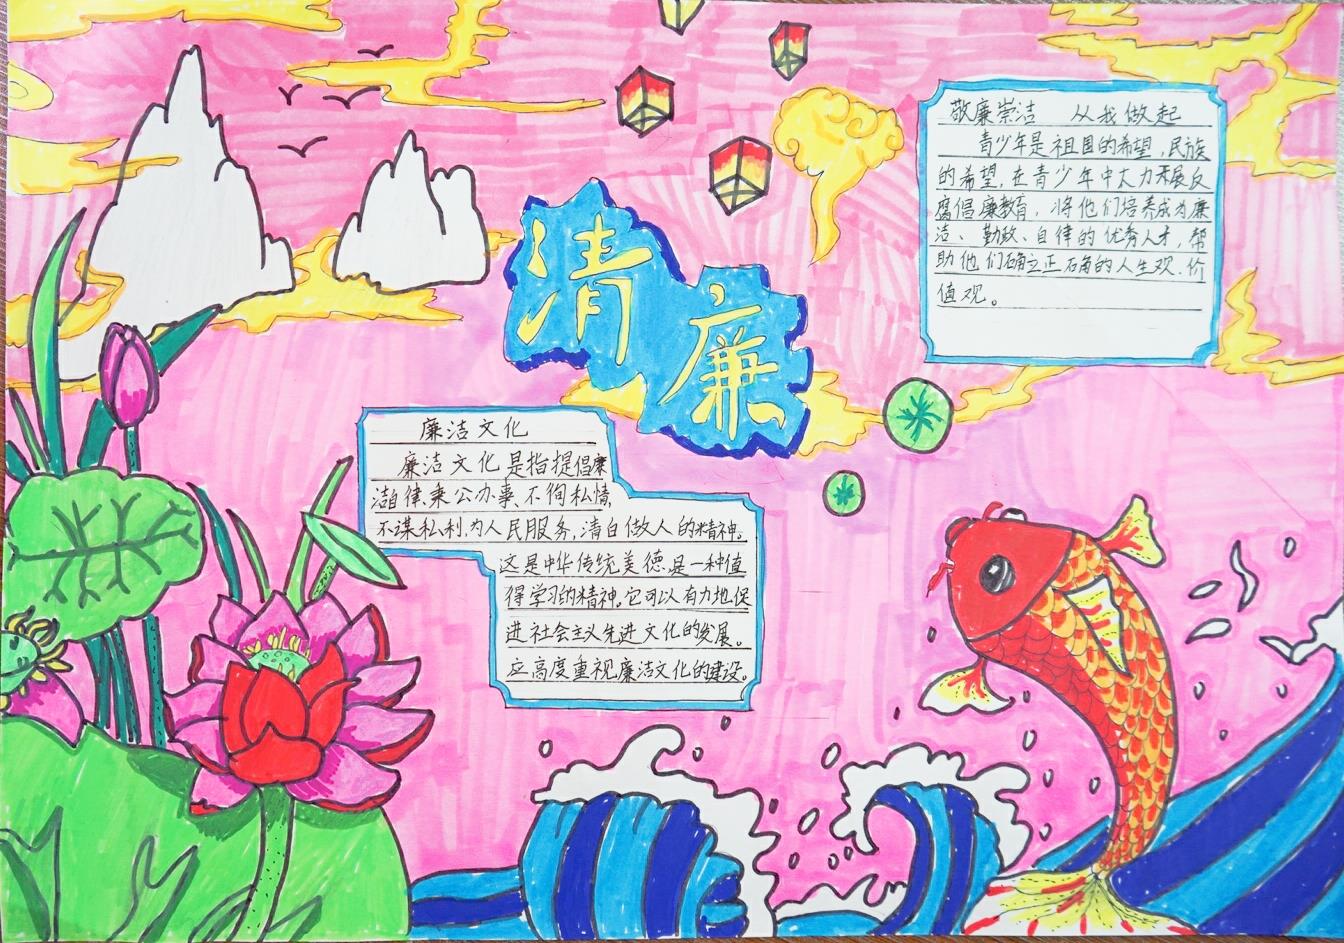 清廉
敬廉崇洁 从我做起
青少年是祖国的希望,民族
的希望,在青少年中大力开展反
腐倡廉教育,将他们培养成为廉
洁、勤政、自律的优秀人才,帮
助他们确立正确的人生观、价
值观。
廉洁文化
廉洁文化是指提倡廉
洁自律、秉公办事、不徇私情,
不谋私利,为人民服务,清白做人的精神。
这是中华传统美德,是一种值
得学习的精神。它可以有力地促
进社会主义先进文化的发展。
应高度重视廉洁文化的建设。